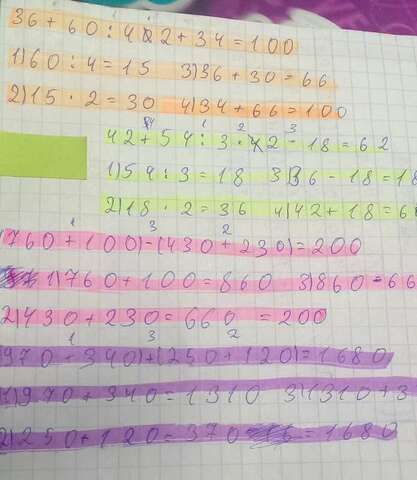 36 + 60 : 4 · 2 + 34 = 100
1) 60 : 4 = 15 3) 36 + 30 = 66
2) 15 · 2 = 30 4) 34 + 66 = 100
4 1 2 3
42 + 54 : 3 · 2 - 18 = 62
1) 54 : 3 = 18 3) 36 - 18 = 18
2) 18 · 2 = 36 4) 42 + 18 = 6
1 3 2
(760 + 100) - (430 + 230) = 200
1) 760 + 100 = 860 3) 860 = 66
2) 430 + 230 = 660 = 200
1 3 2
970 + 340) + (250 + 120) = 1680
1) 970 + 340 = 1310 3) 1310 + 3
2) 250 + 120 = 370 = 1680